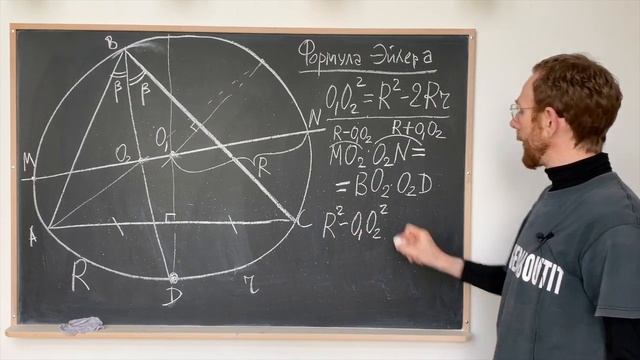 Формула Эйлера
O₁O₂² = R² - 2Rr
R-O₁O₂ R+O₁O₂
MO₂·O₂N =
= BO₂·O₂D
R² - O₁O₂²
B
β β
M
O₂
O₁
N
R
A
C
R
D
r